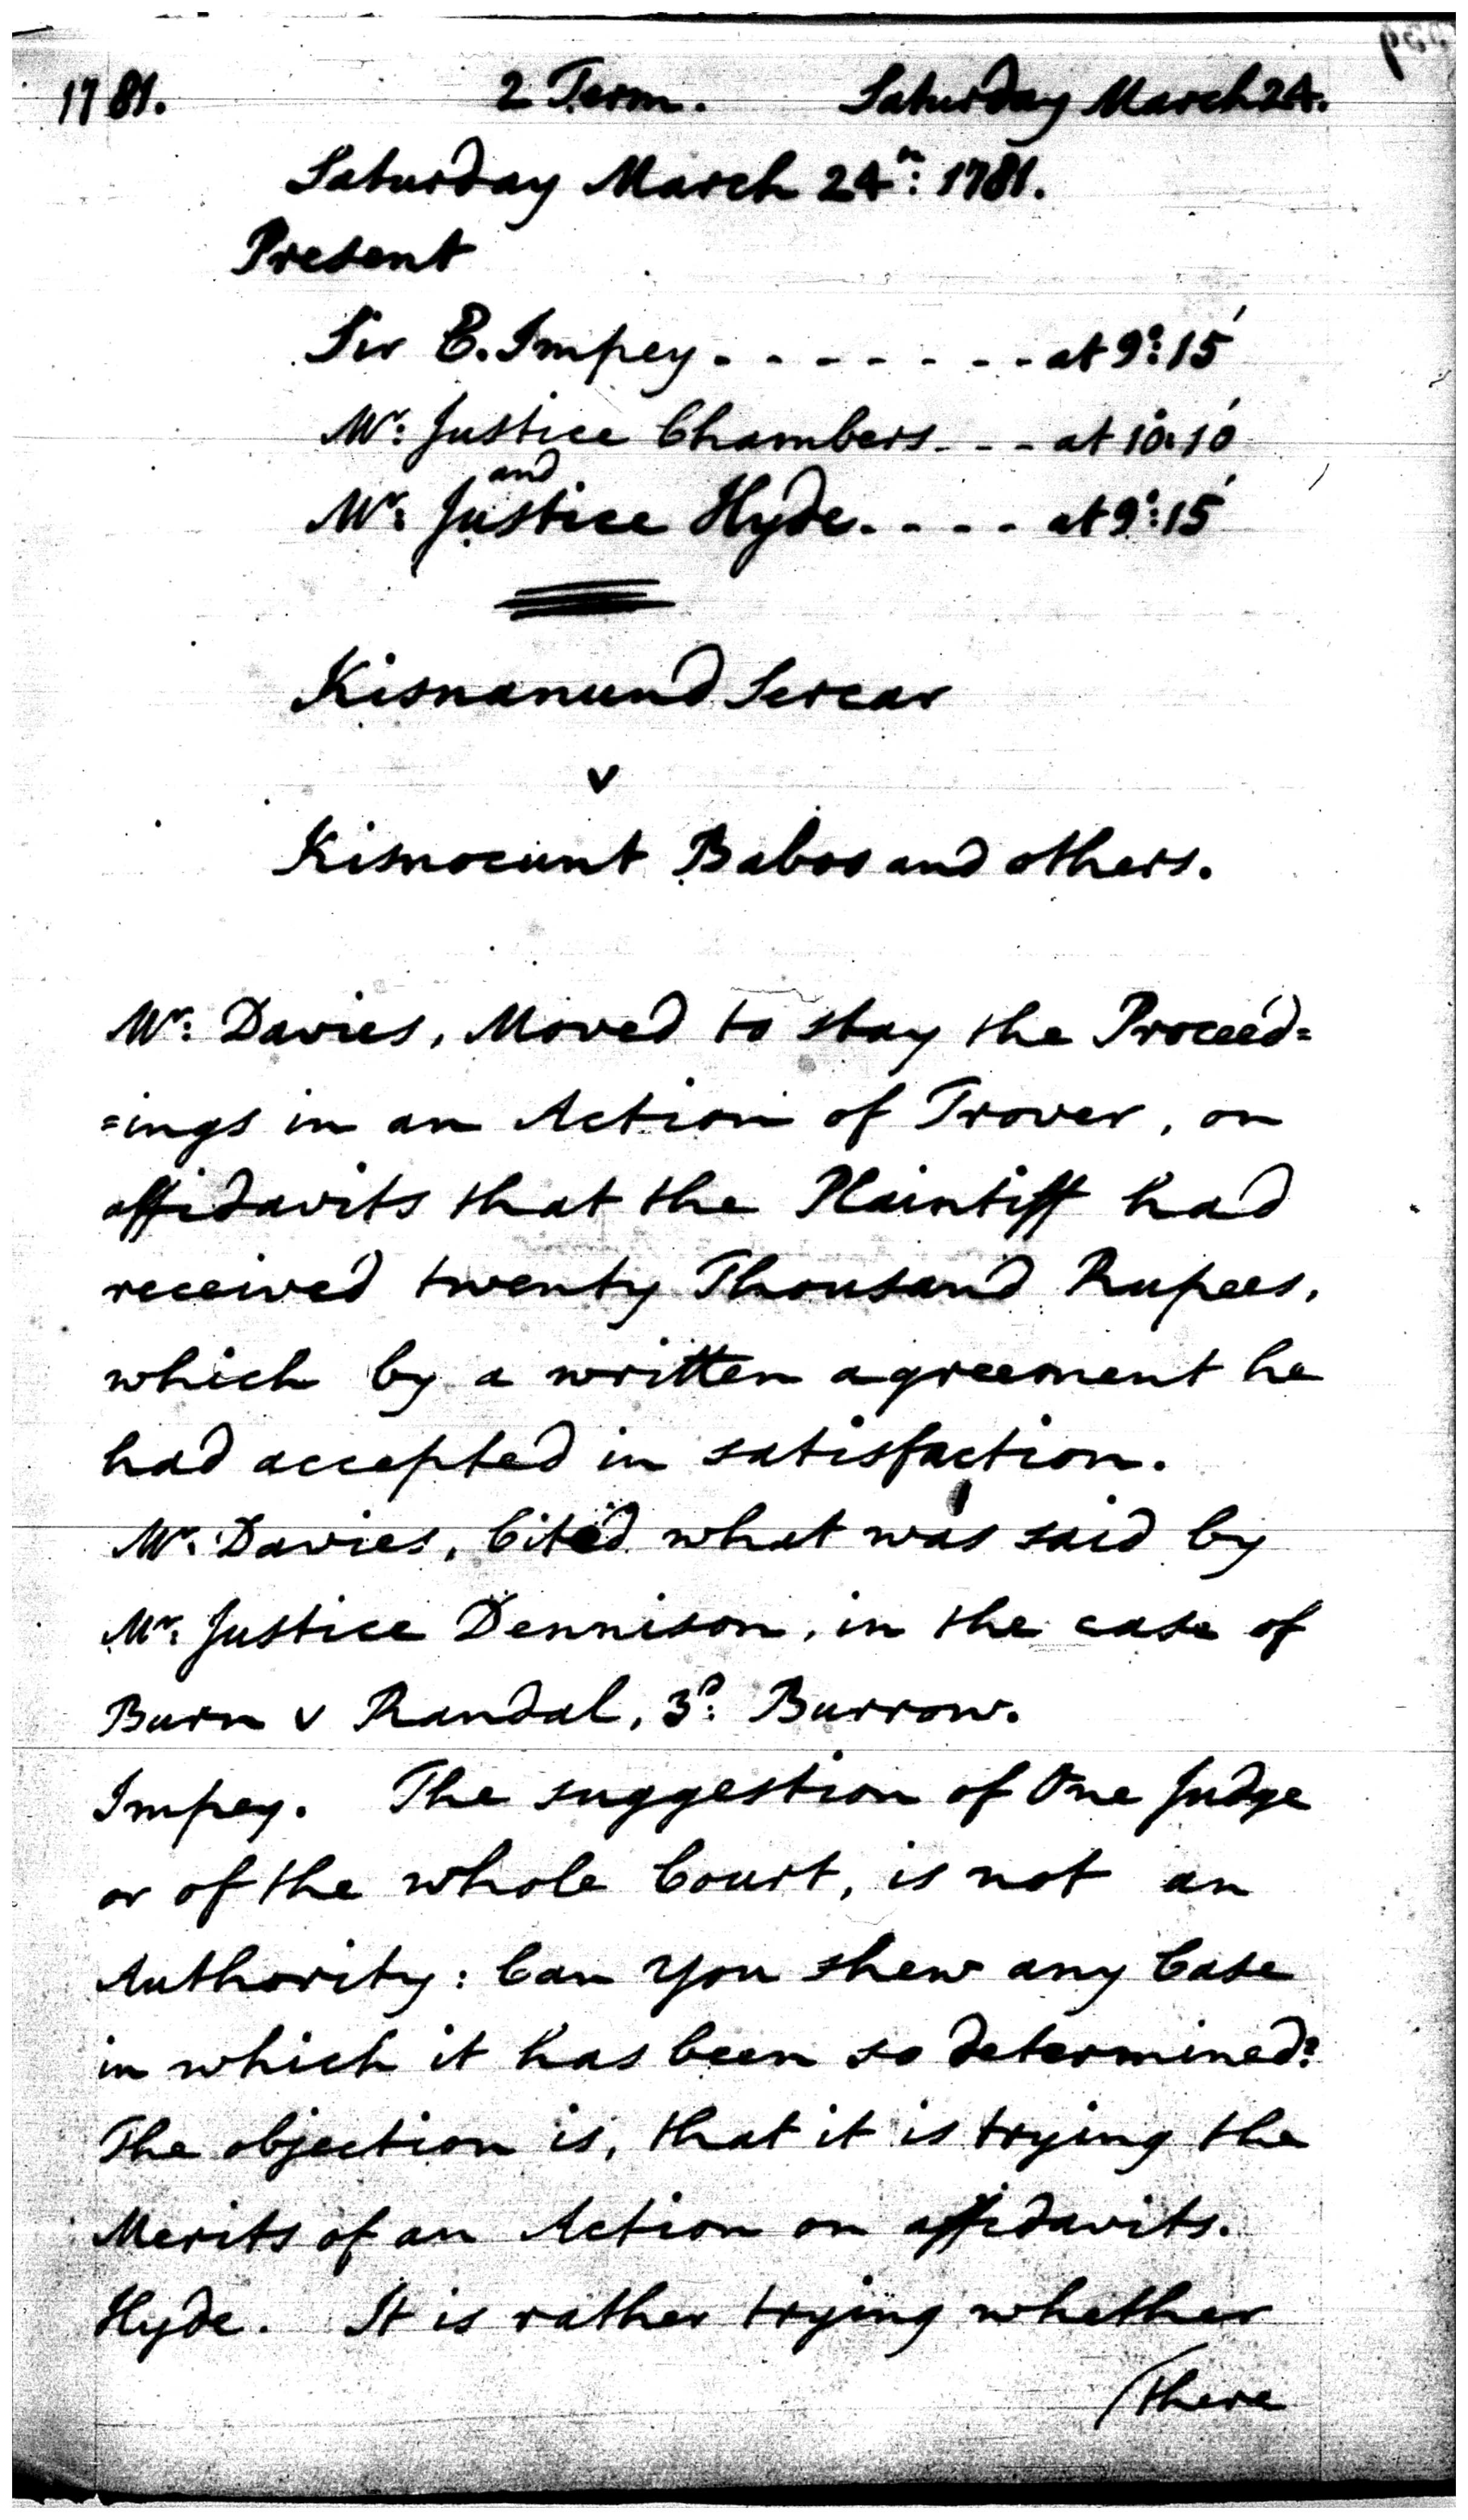 1781. 2 Term. Saturday March 24.
Saturday March 24th: 1781.
Present
Sir E. Impey - - - - - - - at 9°: 15'
Mr: Justice Chambers - - - at 10. 10'
and
Mr: Justice Hyde. - - - - at 9°: 15'
Kisnanund Sercar
v
Kisnocunt Baboo and others.
Mr: Davies, Moved to stay the Proceed=
=ings in an Action of Trover, on
affidavits that the Plaintiff had
received twenty Thousand Rupees,
which by a written agreement he
had accepted in satisfaction.
Mr: Davies, Cited what was said by
Mr: Justice Dennison, in the case of
Burn v Randal, 3d: Burrow.
Impey. The suggestion of One Judge
or of the whole Court, is not an
Authority: Can you shew any Case
in which it has been so determined?
The objection is, that it is trying the
Merits of an Action on affidavits.
Hyde. It is rather trying whether
/there